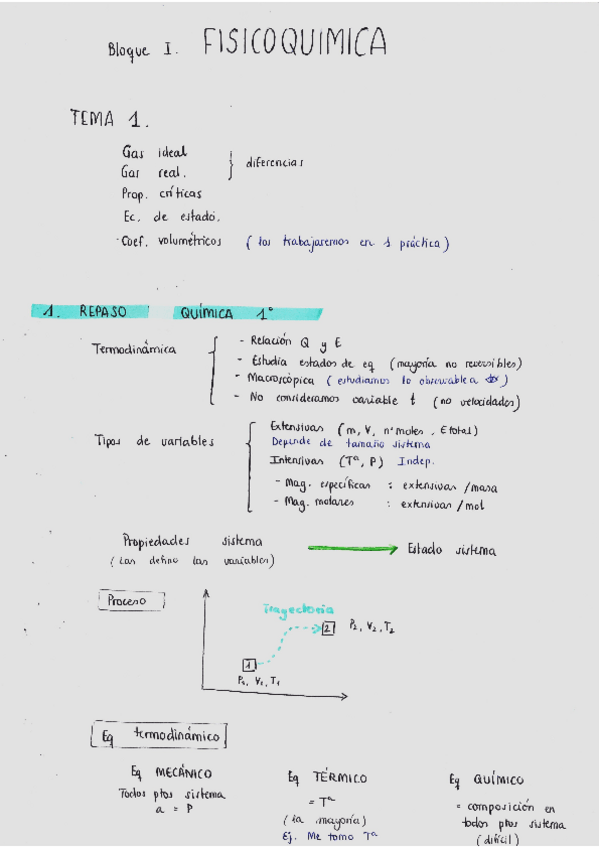 Bloque I. FISICOQUIMICA
TEMA 1.
Gas ideal
Gas real. } diferencias
Prop. críticas
Ec. de estado.
- Coef. volumétricos (los trabajaremos en 1 práctica)
1. REPASO QUÍMICA 1°
Termodinámica
- Relación Q y E
- Estudia estados de eq (mayoría no reversibles)
- Macroscópica (estudiamos lo observable a)
- No consideramos variable t (no velocidades)
Tipos de variables
Extensivas (m, V, nº moles, E total)
Depende de tamaño sistema
Intensivas (Tª, P) Indep.
- Mag. específicas : extensivas /masa
- Mag. molares : extensivas /mol
Propiedades sistema → Estado sistema
(Las defino las variables)
Proceso
Trayectoria
2 P2, V2, T2
1
P1, V1, T1
Eq termodinámico
Eq MECÁNICO
Todos ptos sistema
a = P
Eq TÉRMICO
= Tª
(la mayoría)
Ej. Me tomo Tª
Eq QUÍMICO
= composición en
todos ptos sistema
(difícil)